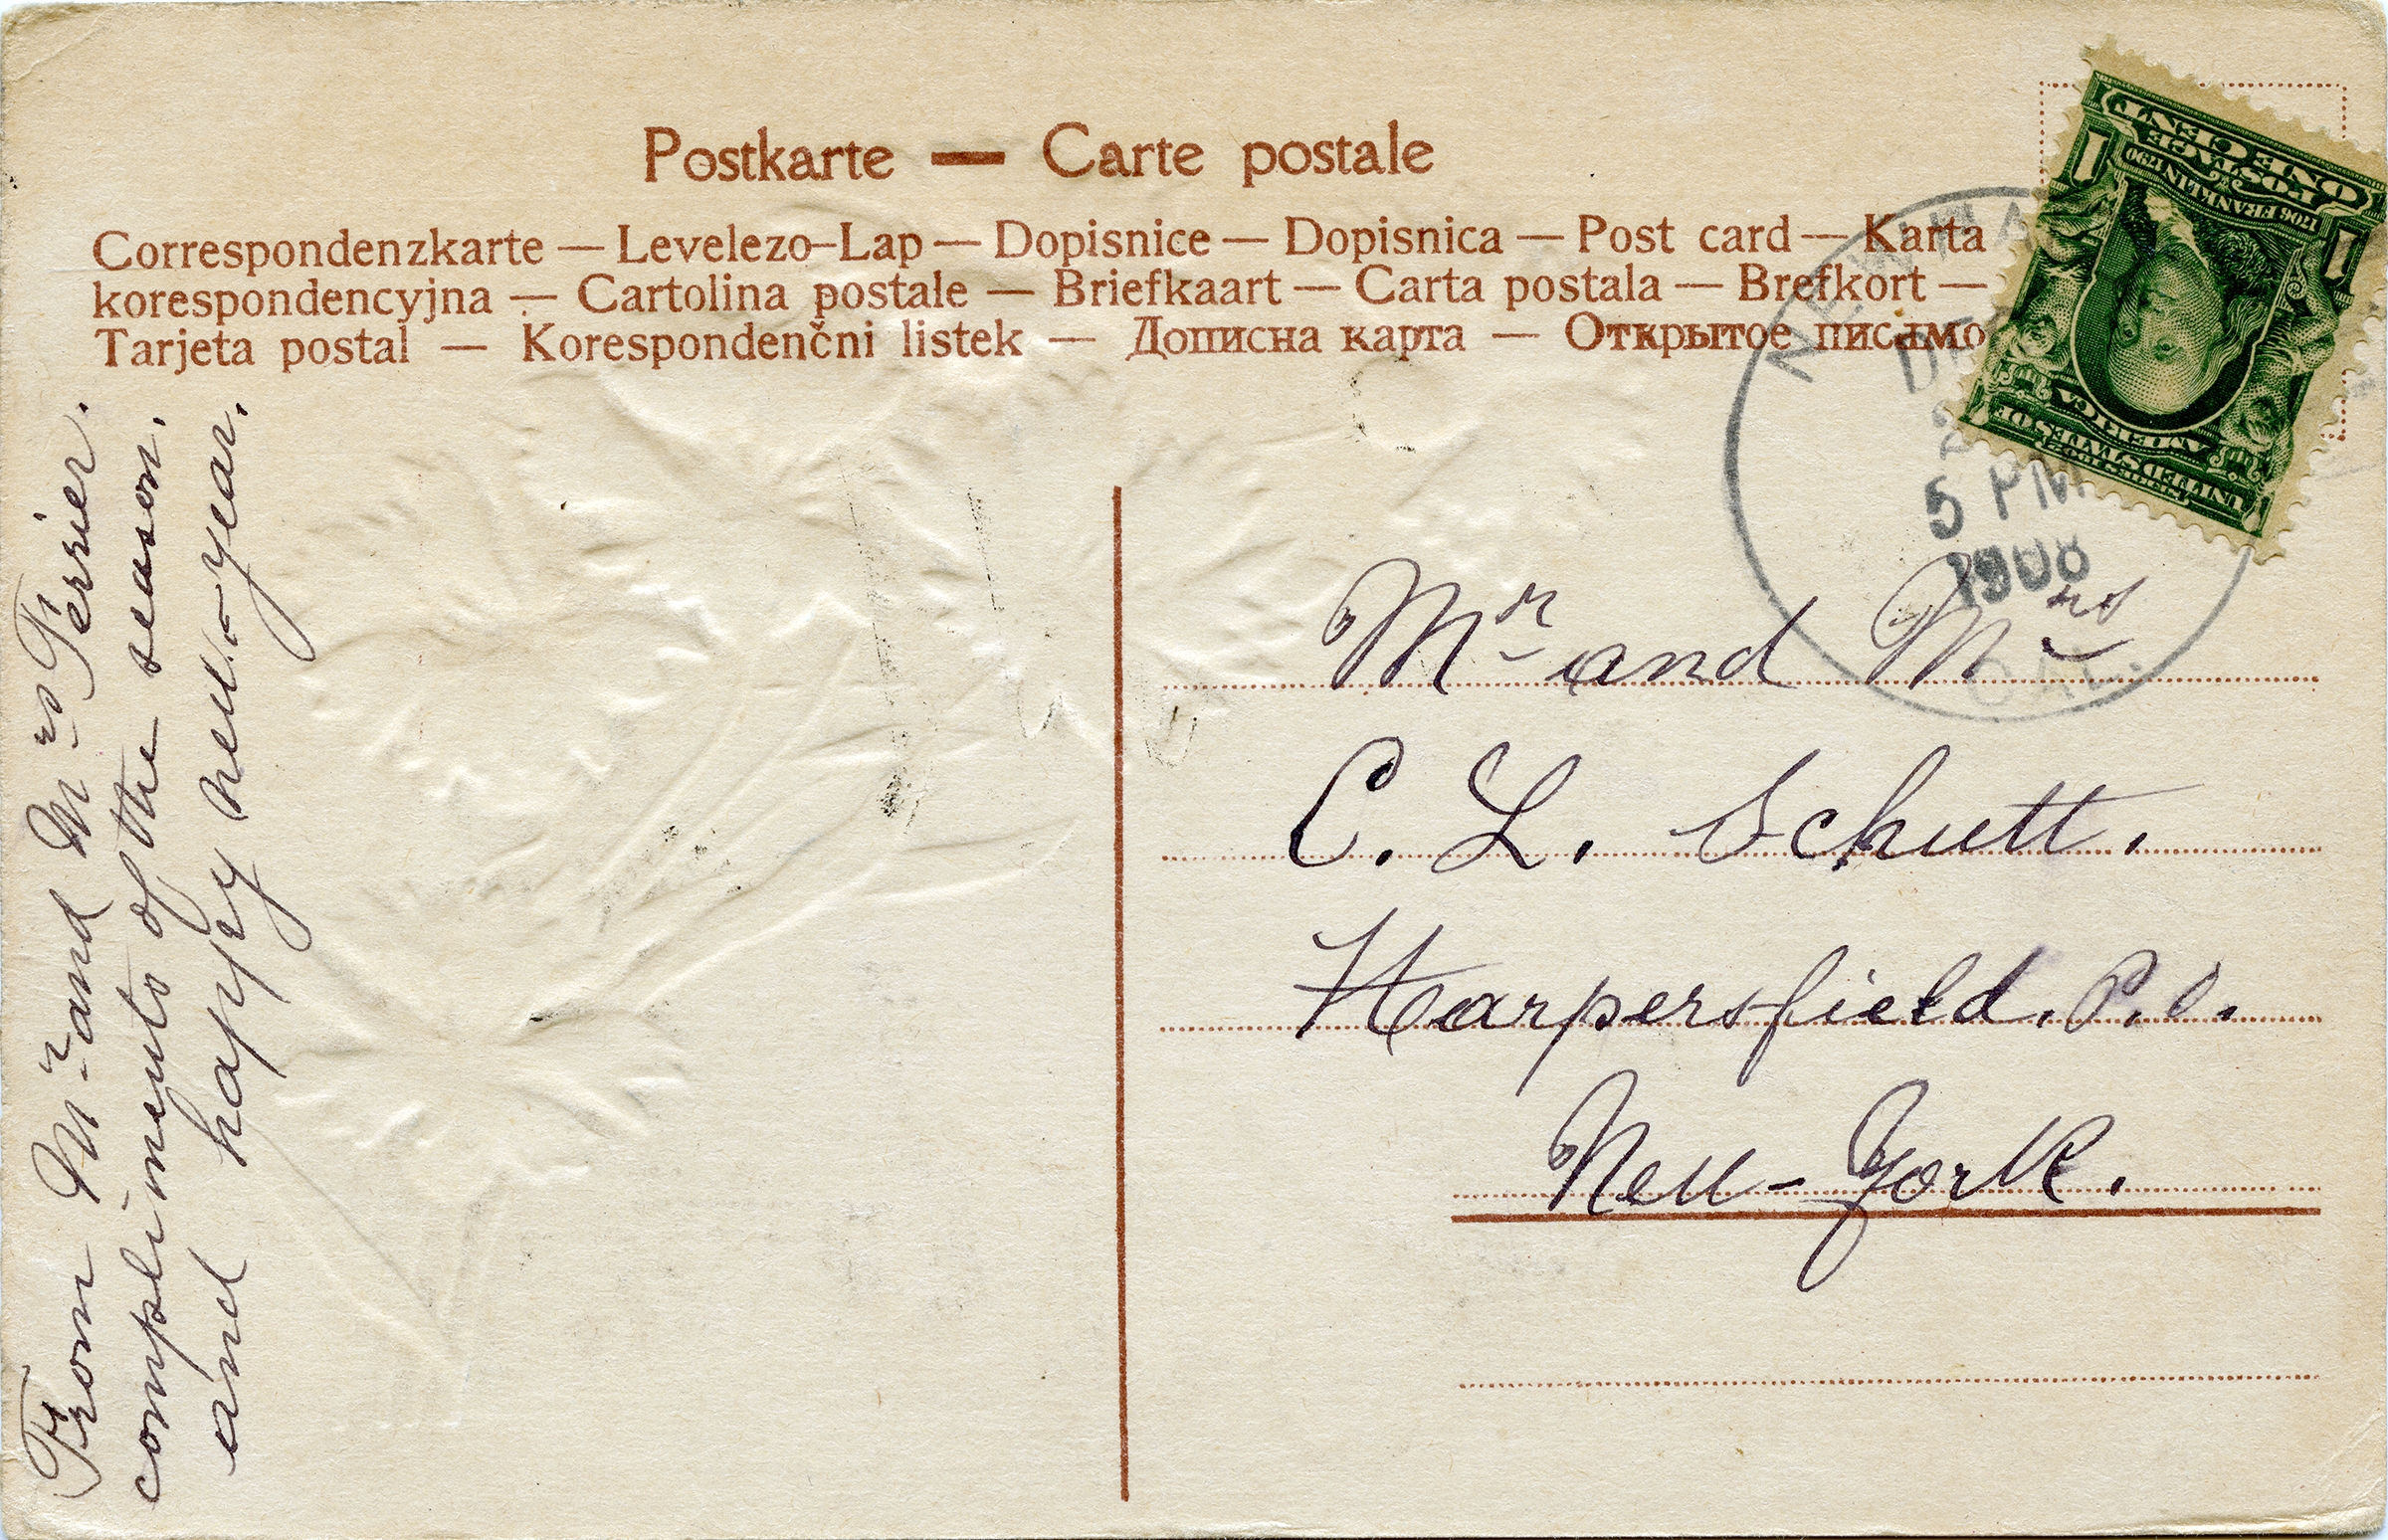 Postkarte — Carte postale
Correspondenzkarte — Levelezo-Lap — Dopisnice — Dopisnica — Post card — Karta
korespondencyjna — Cartolina postale — Briefkaart — Carta postala — Brefkort —
Tarjeta postal — Korespondenčni listek — Дописна карта — Открытое писамо
From Mr and Mrs Perrier.
compliments of the season.
and happy new-year.
ONE CENT
POSTAGE
1706 FRANKLIN 1790
1 1
SERIES 1902
UNITED STATES OF
AMERICA
5 PM
1908
CAL.
Mr and Mrs
C. L. Schutt.
Harpersfield. P.O.
New-York.